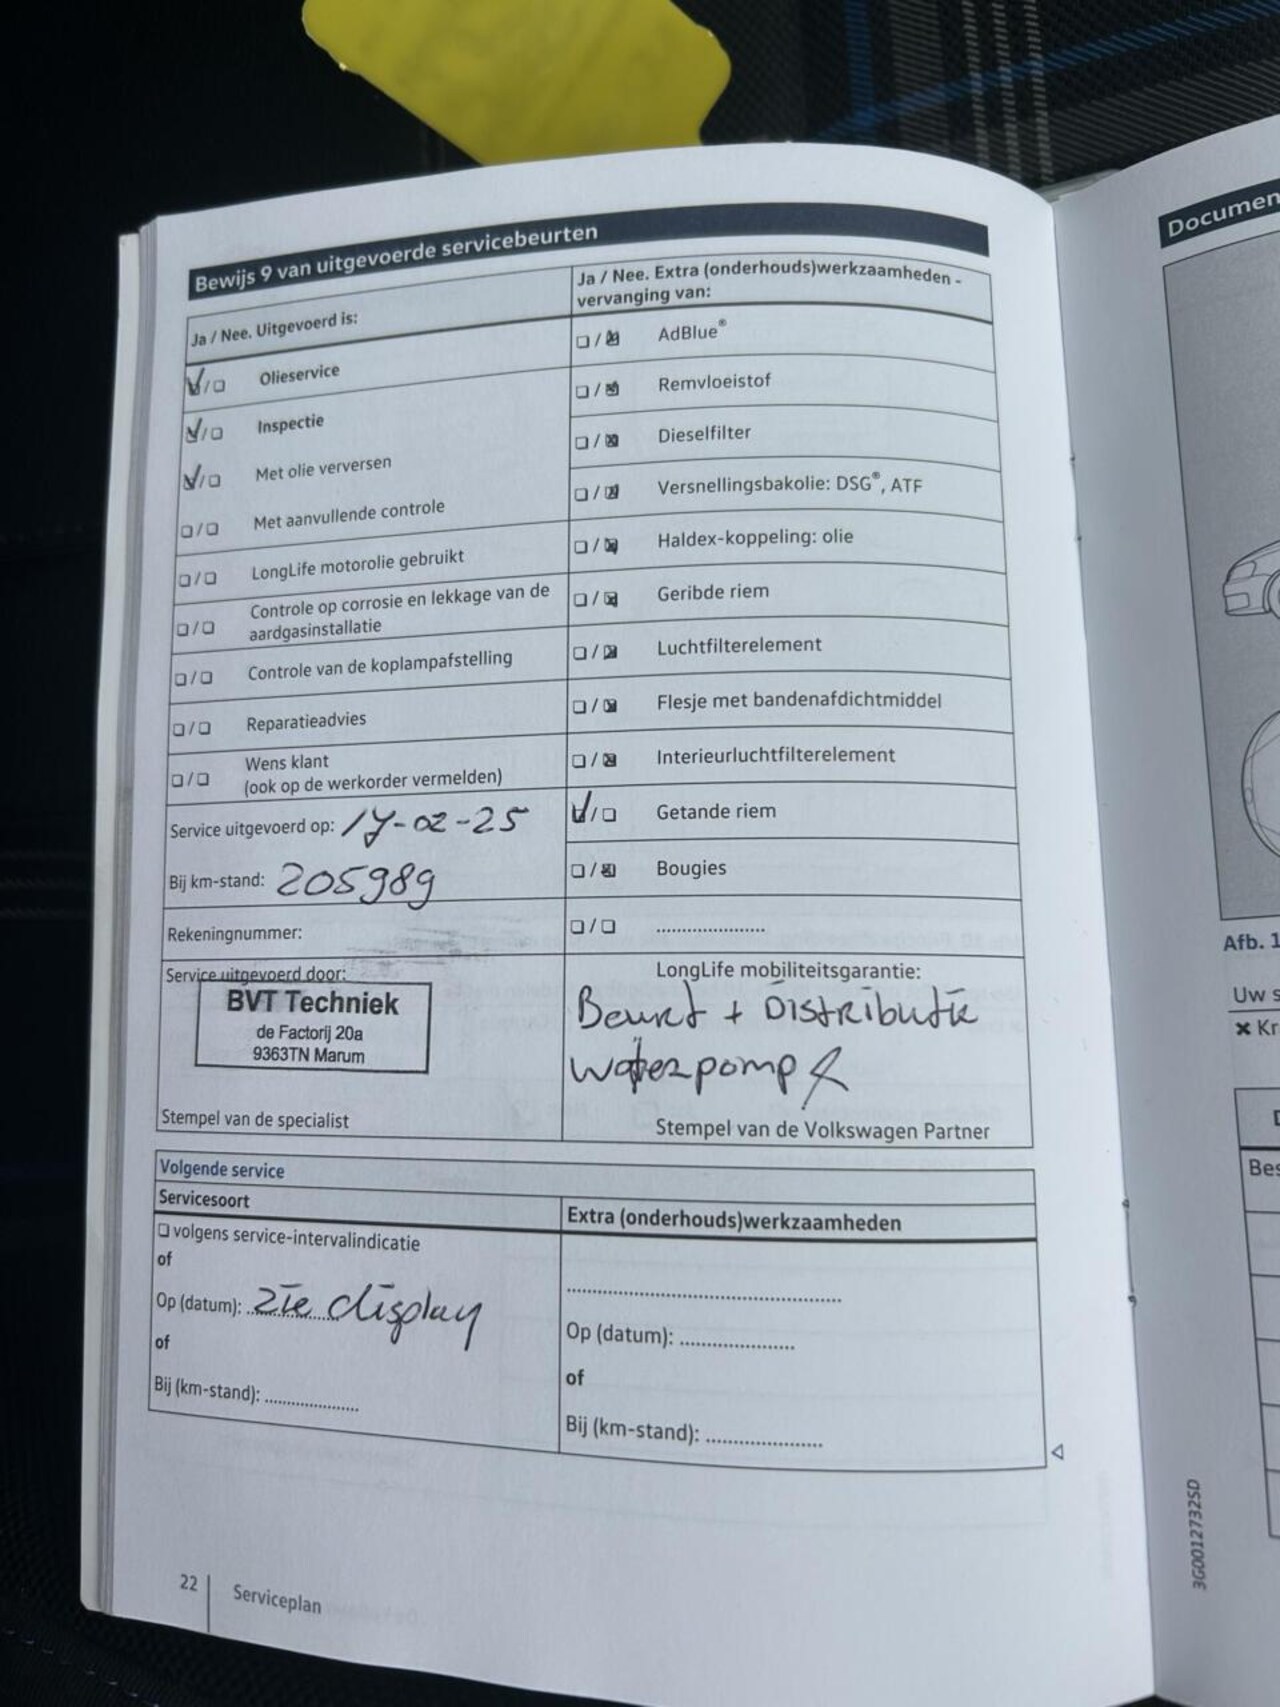 Bewijs 9 van uitgevoerde servicebeurten
Ja / Nee. Uitgevoerd is:
Olieservice
Inspectie
Met olie verversen
Met aanvullende controle
LongLife motorolie gebruikt
Controle op corrosie en lekkage van de
aardgasinstallatie
Controle van de koplampafstelling
Reparatieadvies
Wens klant
(ook op de werkorder vermelden)
Service uitgevoerd op: 17-02-25
Bij km-stand: 205989
Rekeningnummer:
Service uitgevoerd door:
BVT Techniek
de Factorij 20a
9363TN Marum
Stempel van de specialist
Ja / Nee. Extra (onderhouds)werkzaamheden -
vervanging van:
AdBlue®
Remvloeistof
Dieselfilter
Versnellingsbakolie: DSG®, ATF
Haldex-koppeling: olie
Geribde riem
Luchtfilterelement
Flesje met bandenafdichtmiddel
Interieurluchtfilterelement
Getande riem
Bougies
....................
LongLife mobiliteitsgarantie:
Beurt + Distributie
waterpomp
Stempel van de Volkswagen Partner
Volgende service
Servicesoort
volgens service-intervalindicatie
of
Op (datum): zie display
of
Bij (km-stand): ....................
Extra (onderhouds)werkzaamheden
..................................................
Op (datum): .....................
of
Bij (km-stand): .....................
22
Serviceplan
Documen
Afb. 1
Uw s
× Kr
Bes
3G0012732SD